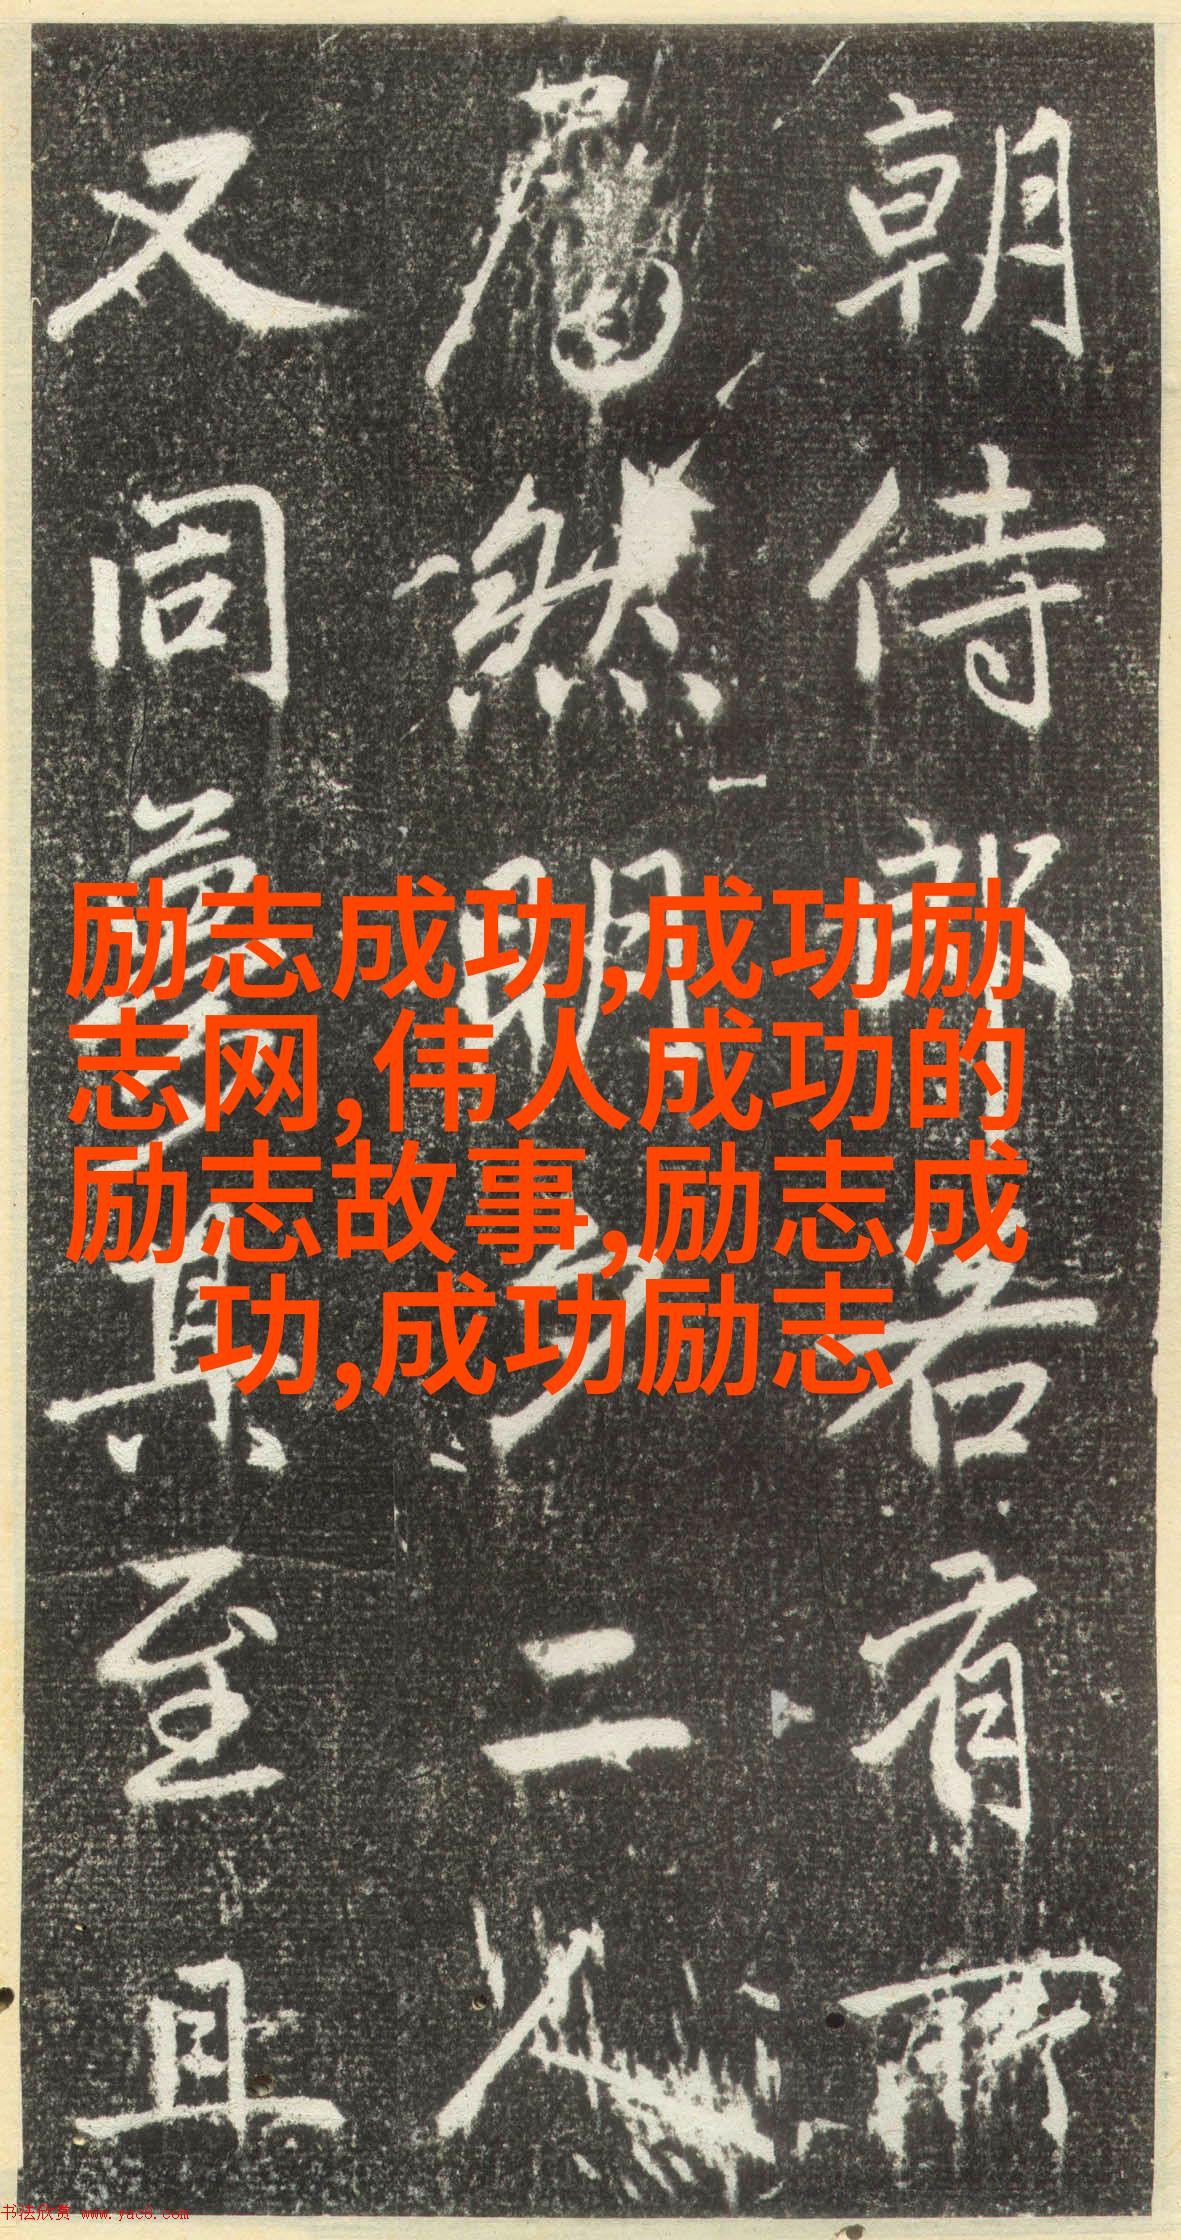 朝侍郎若有所
然明二人
又同真至且
励志成功,成功励
志网,伟人成功的
励志故事,励志成
功,成功励志
书法欣赏 www.yac8.com